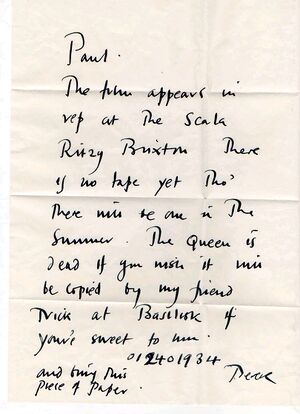 Paul.
The film appears in
rep at The Scala
Ritzy Brixton There
is no tape yet Tho'
There will be one in The
Summer. The Queen is
dead if you wish it will
be copied by my friend
Nick at Basilisk if
you're sweet to him.
01 2401934
and bring This
piece of paper. Derek